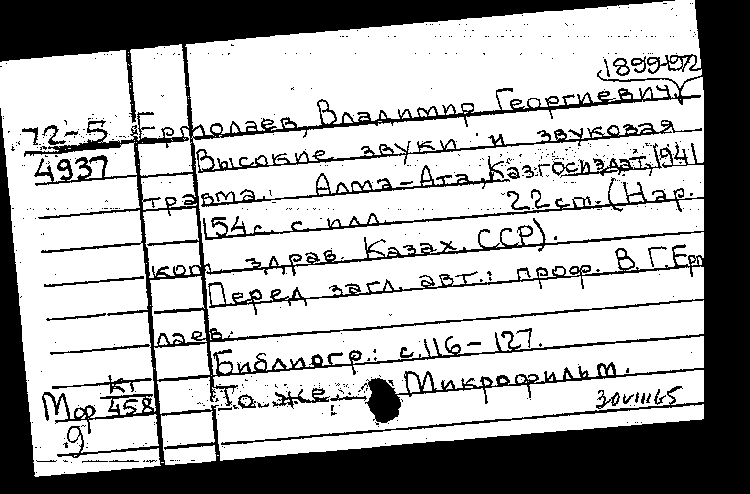 1899-1972
72-5 Ермолаев, Владимир Георгиевич.
4937 Высокие звуки и звуковая
травма. Алма-Ата, Казгосиздат, 1941
154 с. с илл. 22 см. (Нар.
ком. здрав. Казах. ССР).
Перед загл. авт.: проф. В. Г. Ермо
лаев.
Библиогр.: с. 116-127.
Мф К1/458 То же. Микрофильм.
9 30VIII65